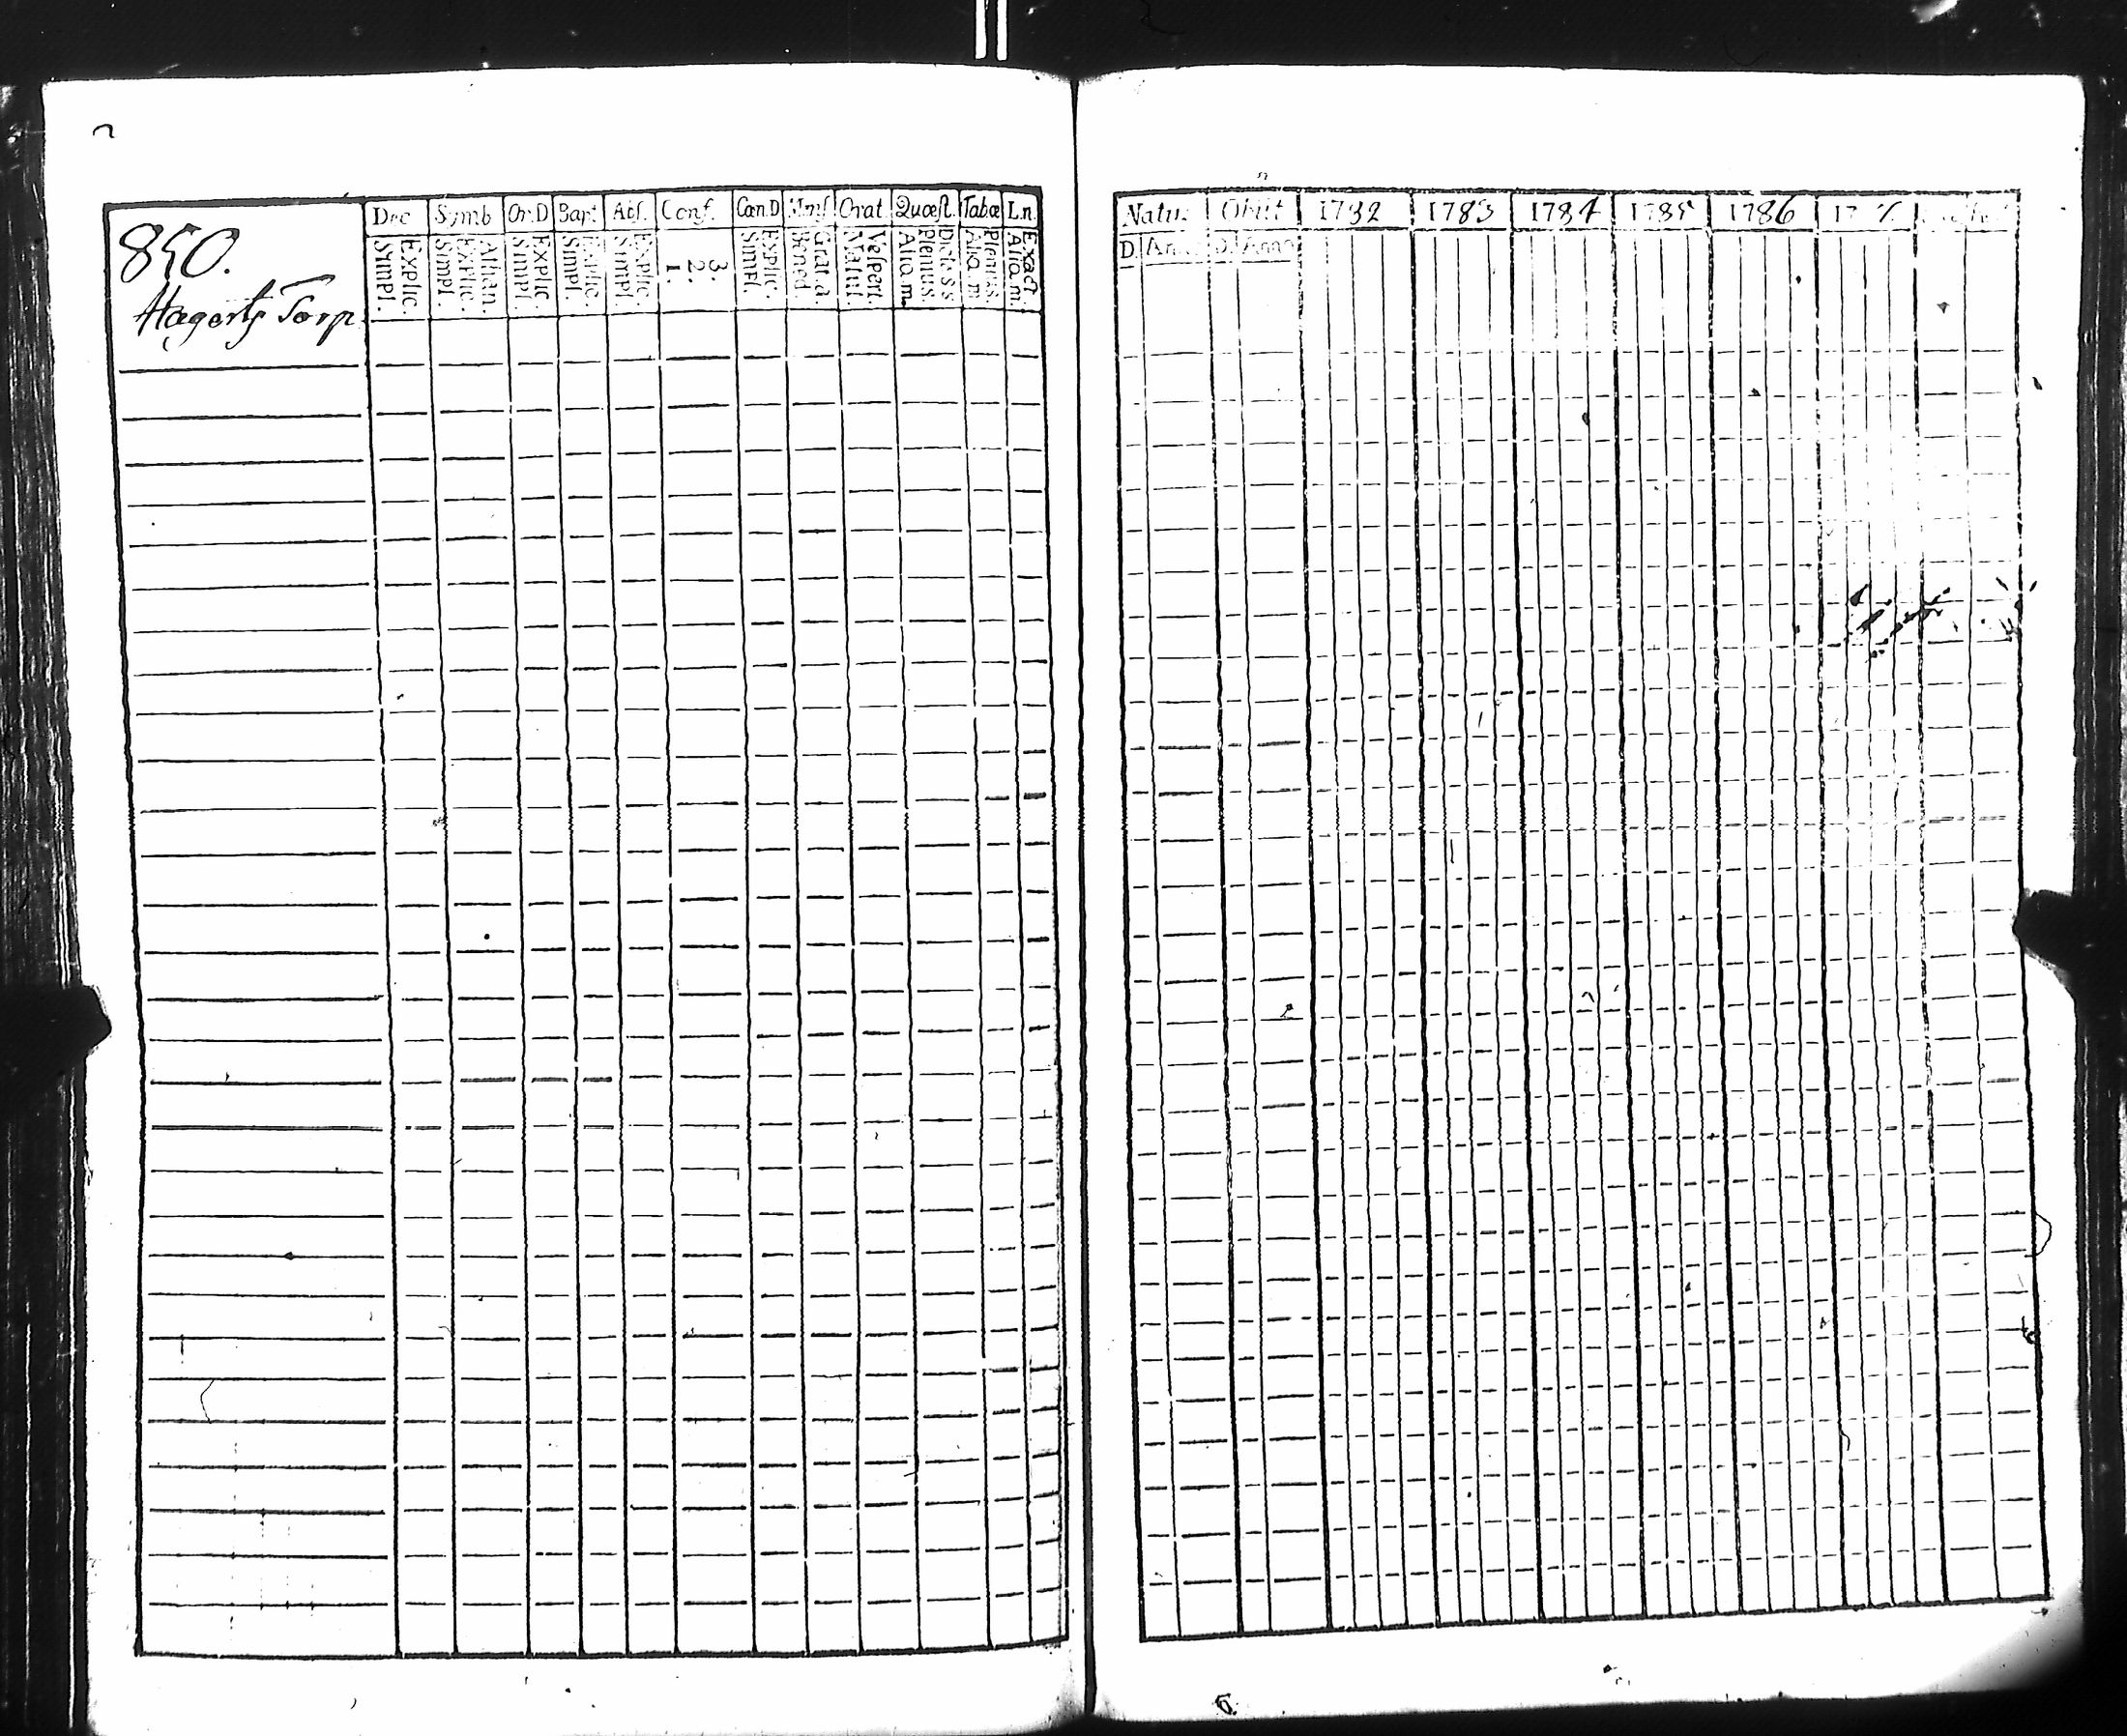 850.
Hagerby Torp.
Dec Symb Or.D Bapt Abs. Conf. Cœn.D Mens Orat. Quæst. Tabæ Ln.
Explic. Simpl.
Athan. Explic. Simpl.
Explic. Simpl
Explic. Simpl.
Explic. Simpl
3. 2. 1.
Explic. Simpl.
Grat.a. Bened.
Vespert. Matut.
Dict.s.s. Plenius. Aliq.m.
Plenius. Aliq.m
Exact. Aliq.m.
Natus Obiit 1782 1783 1784 1785 1786
D. An D. Anno